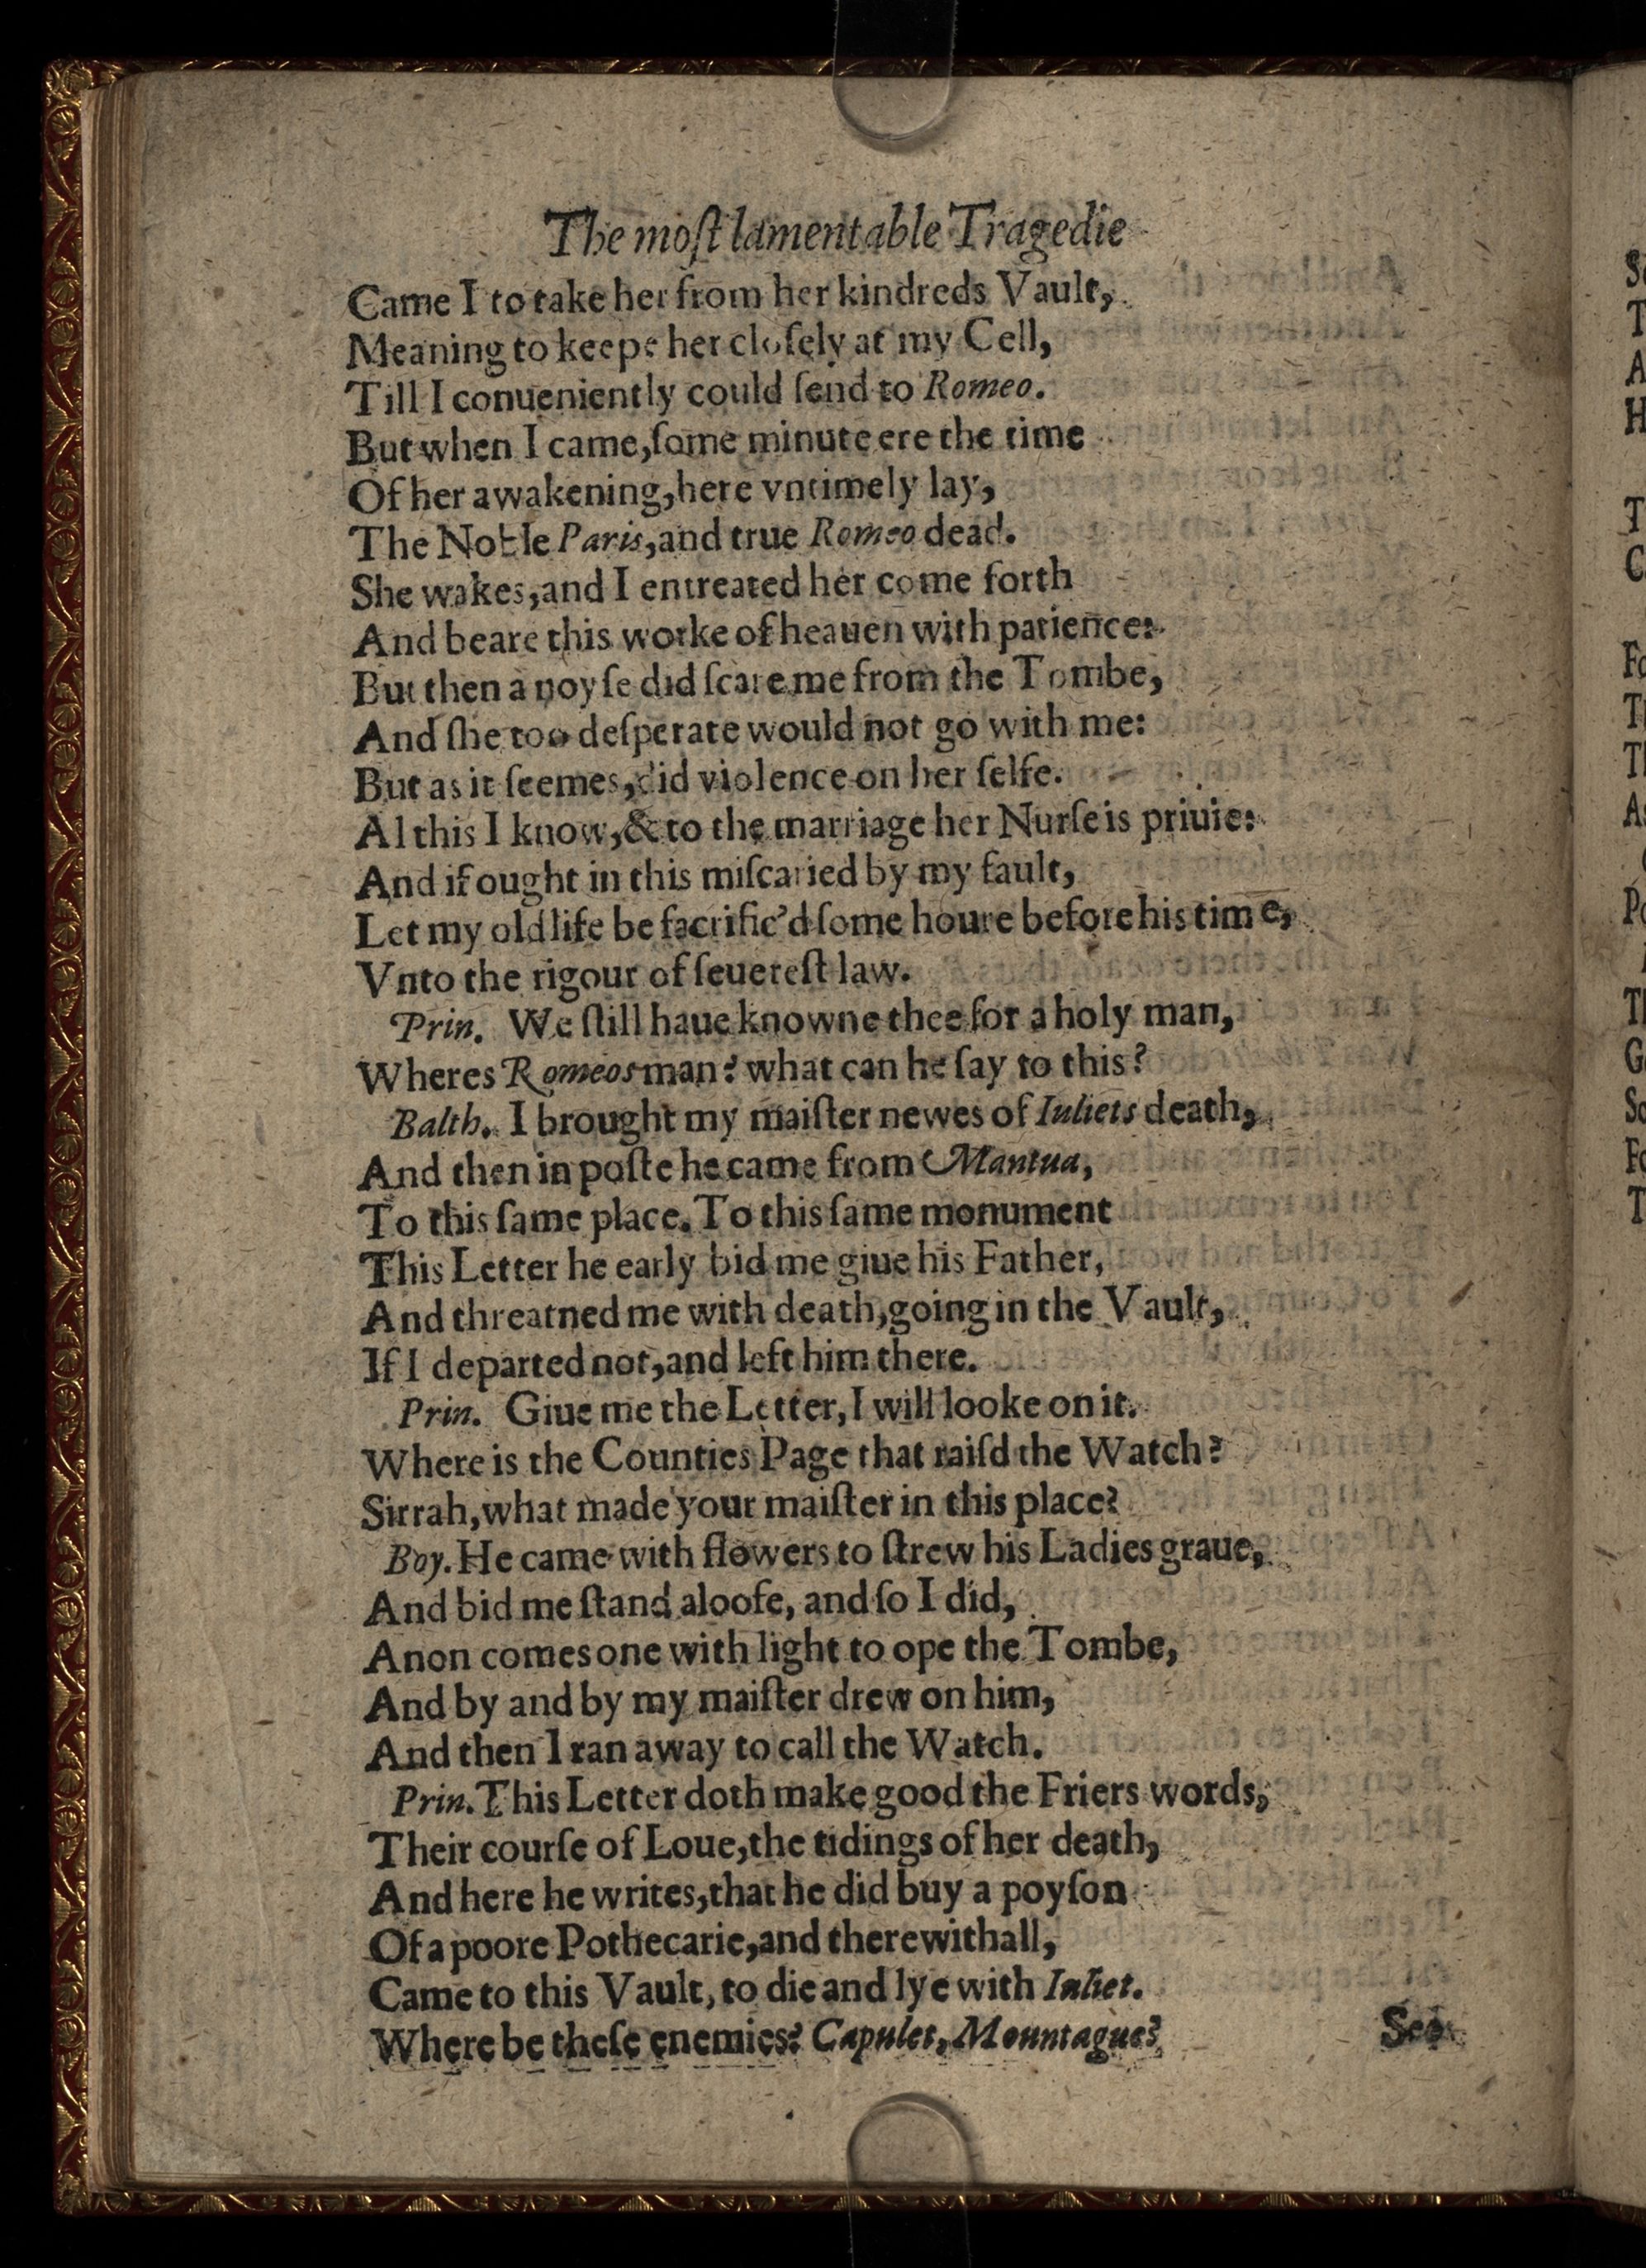 The moſt lamentable Tragedie
Came I to take her from her kindreds Vault,
Meaning to keepe her cloſely at my Cell,
Till I conueniently could ſend to Romeo.
But when I came, ſome minute ere the time
Of her awakening, here vntimely lay,
The Noble Paris, and true Romeo dead.
She wakes, and I entreated her come forth
And beare this worke of heauen with patience:
But then a noyſe did ſcare me from the Tombe,
And ſhe too deſperate would not go with me:
But as it ſeemes, did violence on her ſelfe.
Al this I know, & to the marriage her Nurſe is priuie:
And if ought in this miſcaried by my fault,
Let my old life be ſacrific'd ſome houre before his time,
Vnto the rigour of ſeuereſt law.
Prin. We ſtill haue knowne thee for a holy man,
Wheres Romeos man? what can he ſay to this?
Balth. I brought my maiſter newes of Iuliets death,
And then in poſte he came from Mantua,
To this ſame place. To this ſame monument
This Letter he early bid me giue his Father,
And threatned me with death, going in the Vault,
If I departed not, and left him there.
Prin. Giue me the Letter, I will looke on it.
Where is the Counties Page that raiſd the Watch?
Sirrah, what made your maiſter in this place?
Boy. He came with flowers to ſtrew his Ladies graue,
And bid me ſtand aloofe, and ſo I did,
Anon comes one with light to ope the Tombe,
And by and by my maiſter drew on him,
And then I ran away to call the Watch.
Prin. This Letter doth make good the Friers words,
Their courſe of Loue, the tidings of her death,
And here he writes, that he did buy a poyſon
Of a poore Pothecarie, and therewithall,
Came to this Vault, to die and lye with Iuliet.
Where be theſe enemies? Capulet, Mountague?
See